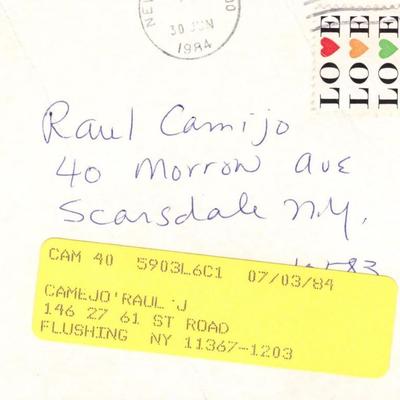 30 JUN
1984
LOVE
LOVE
LOVE
Raul Camijo
40 Morrow Ave
Scarsdale N.Y.
CAM 40 5903L6C1 07/03/84
CAMEJO'RAUL J
146 27 61 ST ROAD
FLUSHING NY 11367-1203